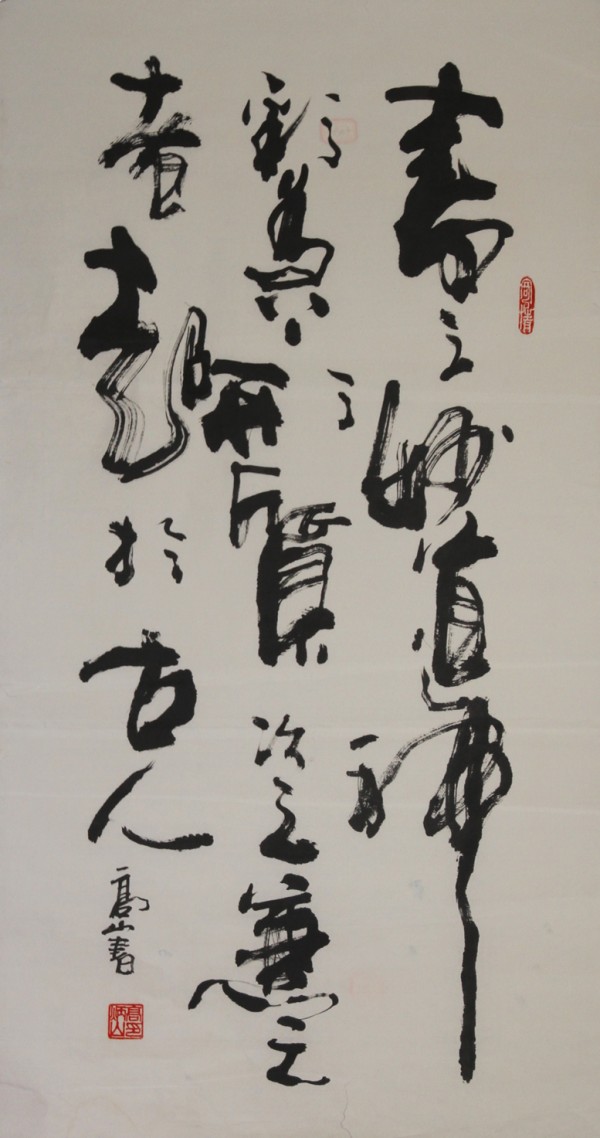 書之妙道神
彩為上形質次之兼之
者紹於古人
高山書